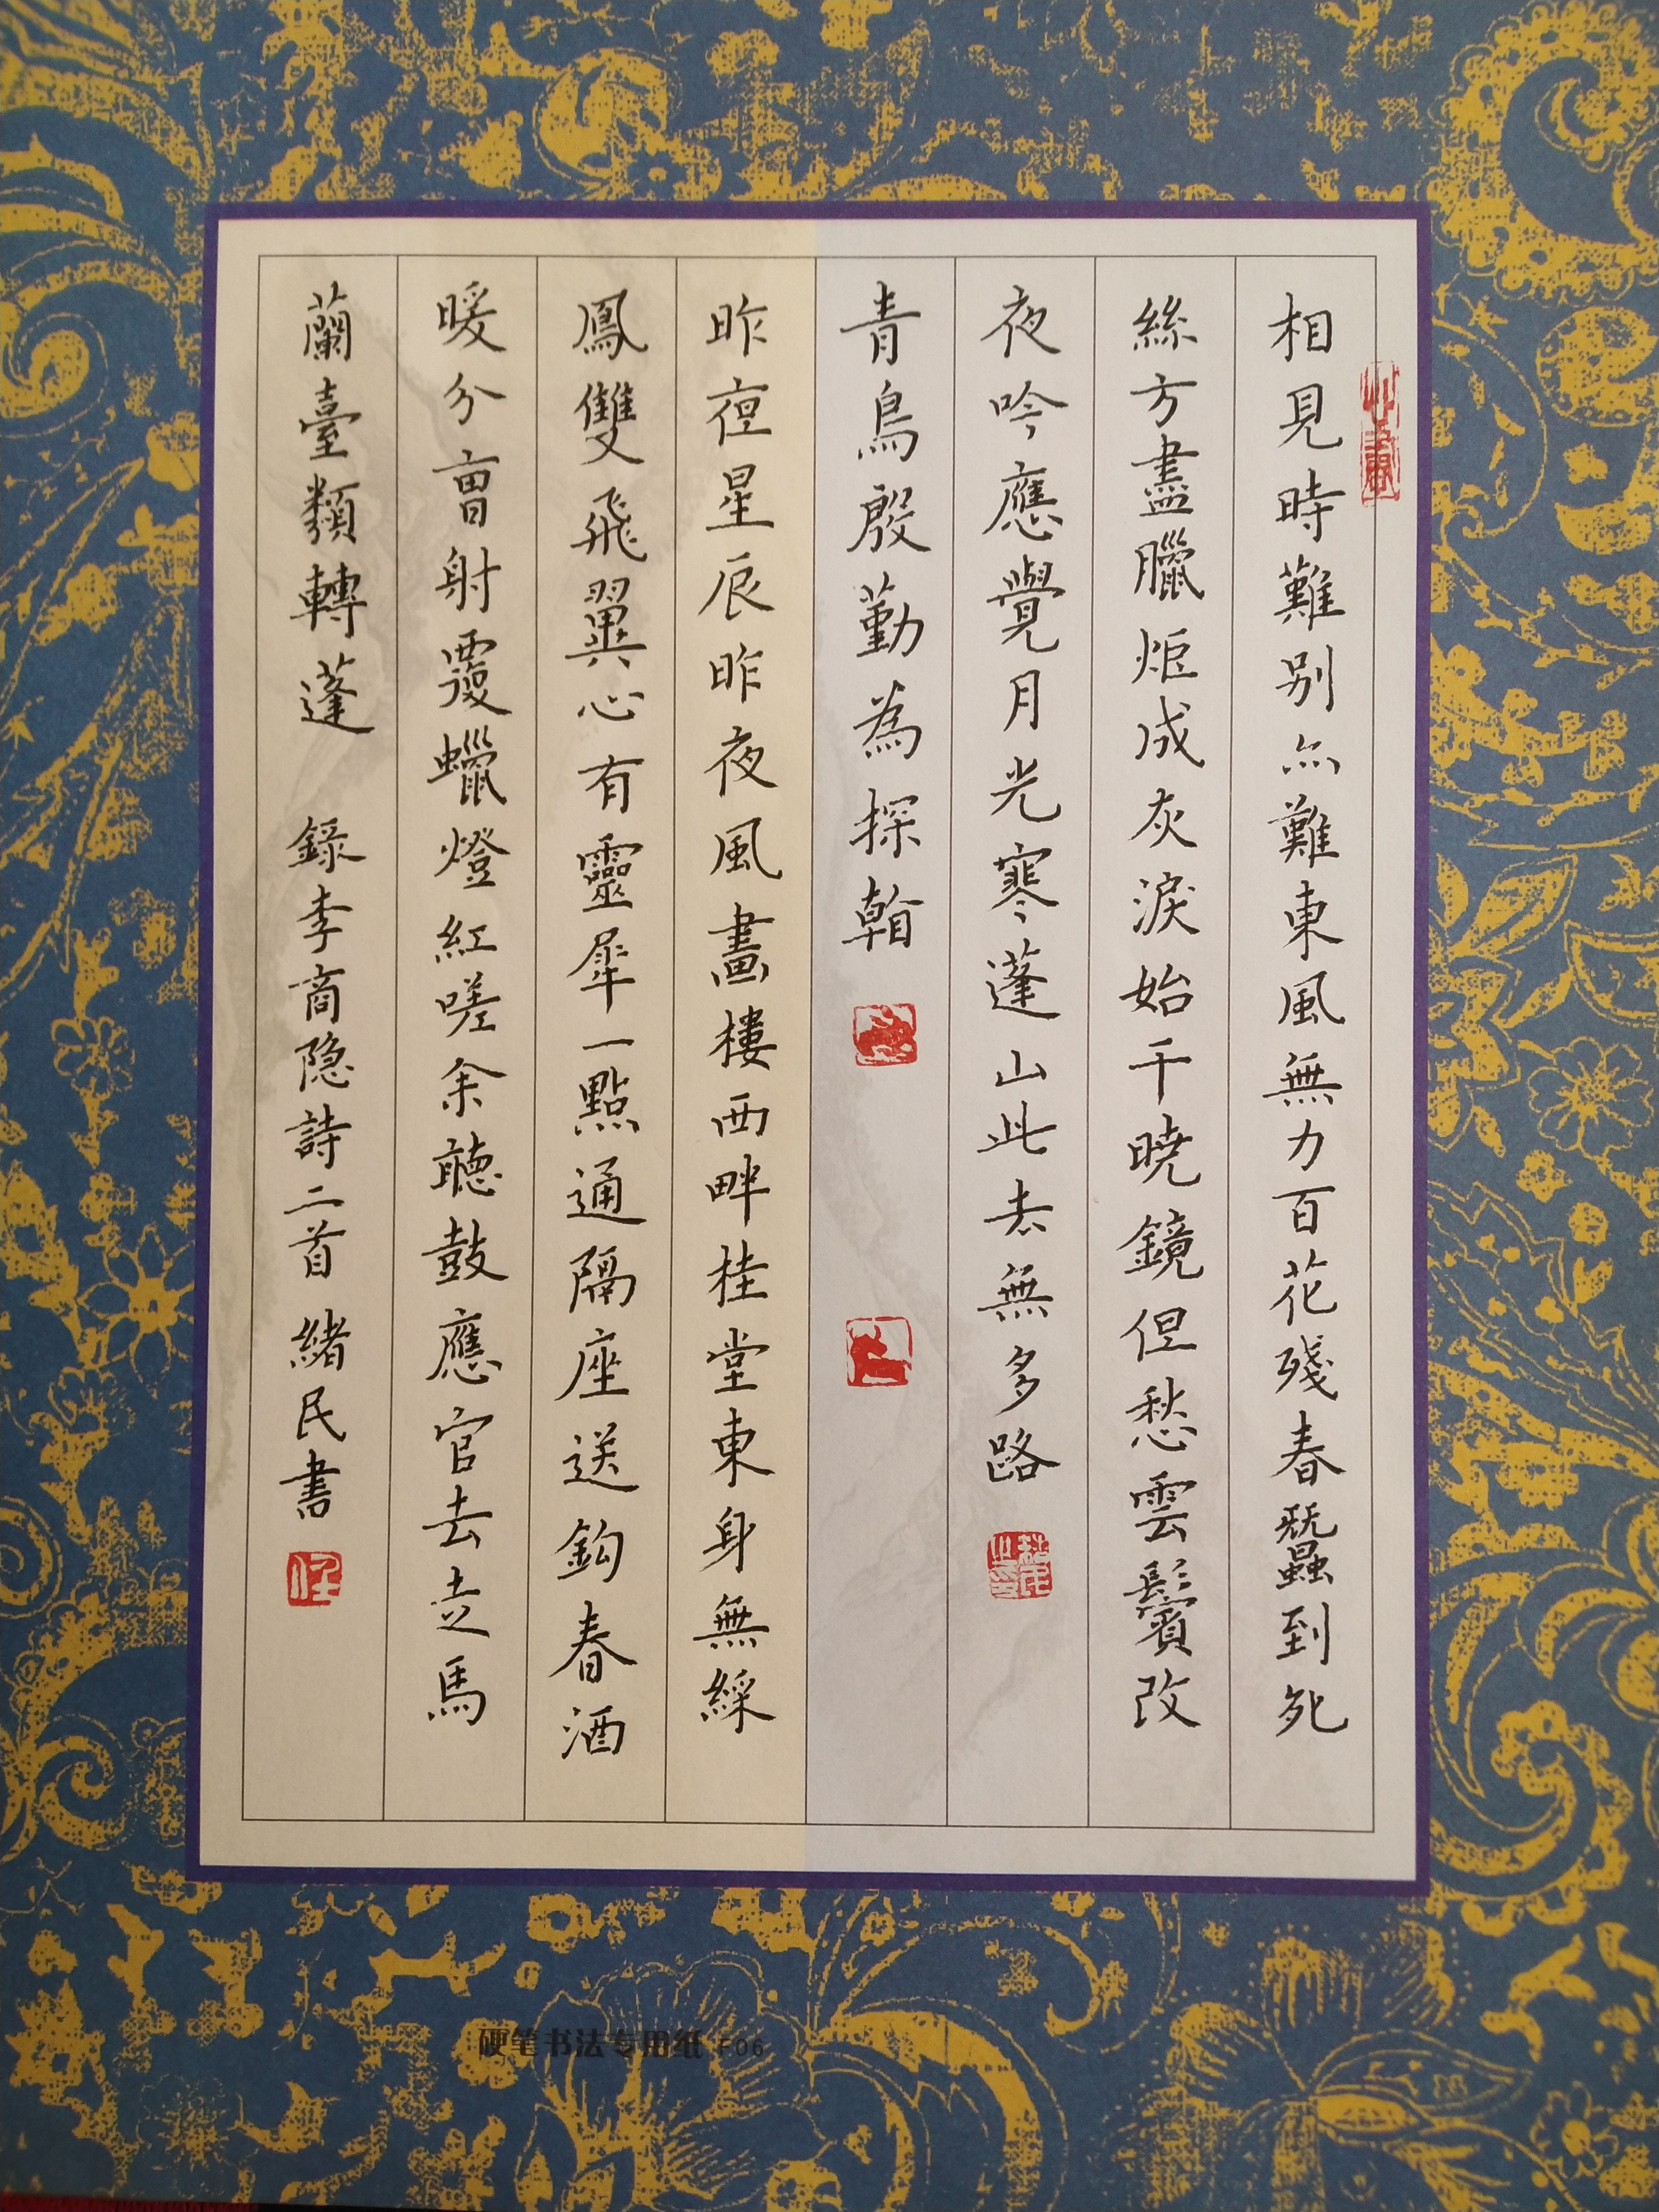 相見時難别亦難東風無力百花殘春蠶到死
絲方盡臘炬成灰淚始干曉鏡但愁雲鬢改
夜吟應覺月光寒蓬山此去無多路
青鳥殷勤為探看
昨夜星辰昨夜風畫樓西畔桂堂東身無綵
鳳雙飛翼心有靈犀一點通隔座送鈎春酒
暖分曹射覆蠟燈紅嗟余聽鼓應官去走馬
蘭臺類轉蓬 錄李商隐詩二首 緒民書
硬笔书法专用纸 F06